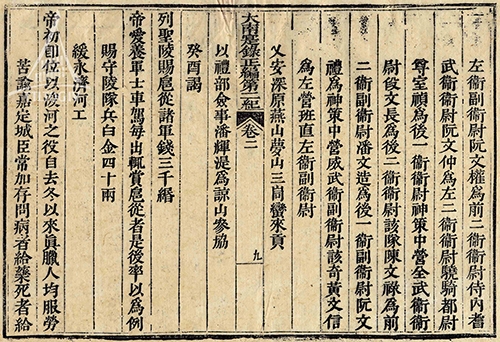 左衛副衛尉阮文權為前二衛衛尉侍內耆
武衛衛尉阮文仲為左二衛衛尉驍騎都尉
尊室禎為後一衛衛尉神策中營全武衛衛
尉段文長為後二衛衛尉該隊陳文祿為前
二衛副衛尉潘文造為後一衛副衛尉阮文
禮為神策中營威武衛副衛尉該奇黃文信
為左營班直左衛副衛尉
乂安深原燕山蔓山三峝蠻來貢
大南寔錄正編第二紀 卷二 九
以禮部僉事潘輝湜為諒山參協
癸酉謁
列聖陵賜扈從諸軍錢三千緡
帝愛養軍士車駕每出輒賞扈從者是後率以為例
賜守陵隊兵白金四十兩
緩永濟河工
帝初即位以浚河之役自去冬以來眞臘人均服勞
苦諭嘉定城臣常加存問病者給藥死者給